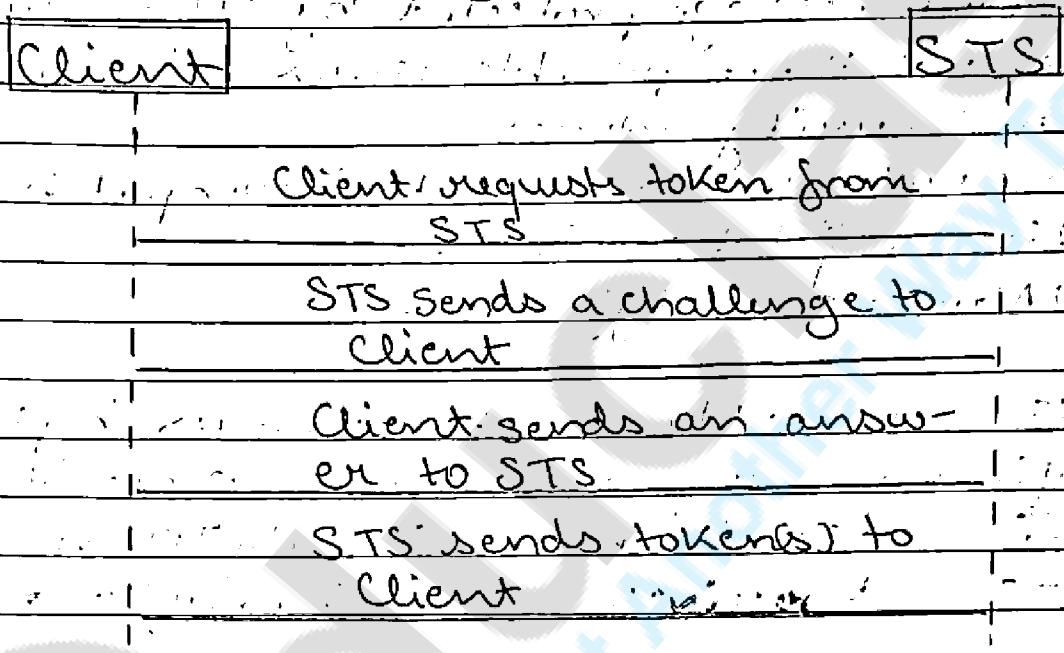 Client
S.TS
Client requests token from
STS
STS sends a challenge to
Client
Client sends an answ-
er to STS
STS sends token(s) to
Client